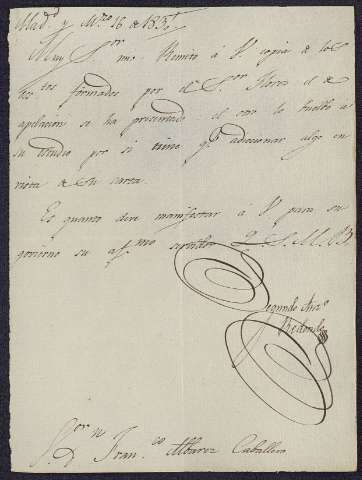 Mad.d y Mzo 16 de 1835
Muy S.or mio Remito á V. copia de los
tos formados por el S.or Flores el de
apelacion se ha precentado el otro lo buelbo á
su tendra por si tiene q.e adiccionar algo en
vista de su carta.
Es quanto devo manifestar á V. para su
govierno su af.mo servidor Q. S. M. B.
Segundo Ant.o
Redondo
S.or D.n Fran.co Albarez Caballero